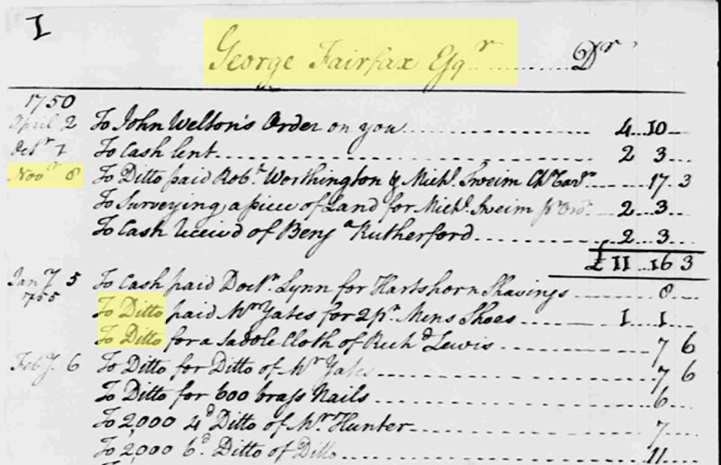 I
George Fairfax Esqr. Dr
1750
April 2 To John Welton's Order on you 4 10
Octr 7 To Cash lent 2 3
Novr 8 To Ditto paid Robt. Worthington & Michl. Sweim 17 3
To Surveying a piece of Land for Michl. Sweim 2 3
To Cash Receivd of Benja Rutherford 2 3
£ 11 16 3
Jany 5 To Cash paid Doctr. Lynn for Hartshorn Shavings 8
1755
To Ditto paid Mr Yates for 2 pr. Mens Shoes 1 1
To Ditto for a Saddle Cloth of Richd Lewis 7 6
Feby. 6 To Ditto for Ditto of Mr Yates 7 6
To Ditto for 600 brass Nails 6
To 2,000 4d Ditto of Mr Hunter 7
To 2,000 6d. Ditto of Ditto 11